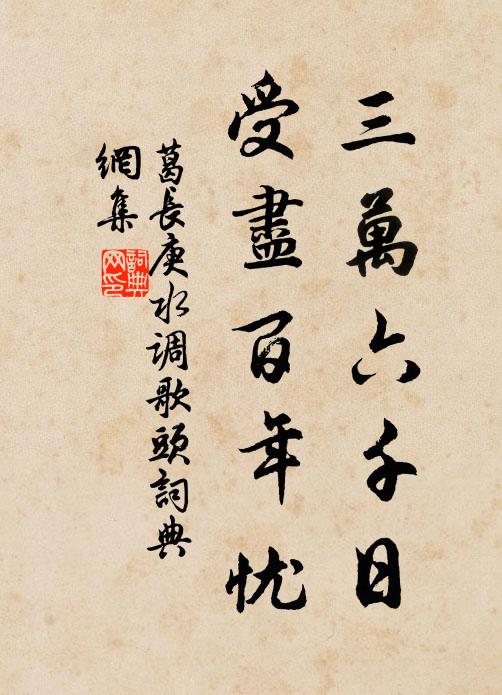 三萬六千日
受盡百年忧
葛長庚水调歌頭詞典
網集
詞典
网印